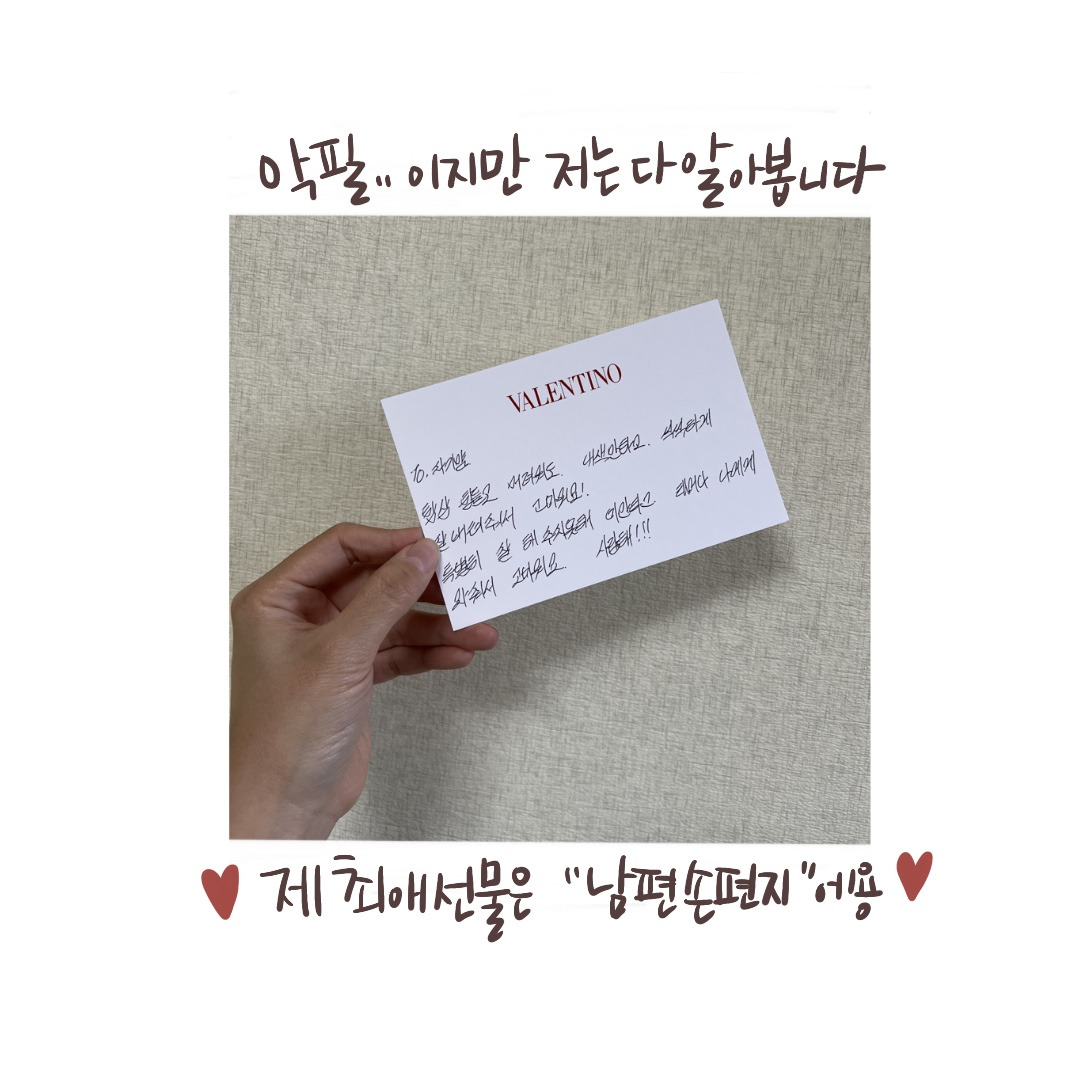 악필.. 이지만 저는 다 알아봅니다
VALENTINO
To. 자기야
항상 힘들고 어려워도 내색안하고 씩씩하게
잘 내려와줘서 고마워요!
특별히 잘 해 주지못해 미안하고 나에게
와줘서 고마워요. 사랑해!!!
제 최애선물은 "남편손편지"에용